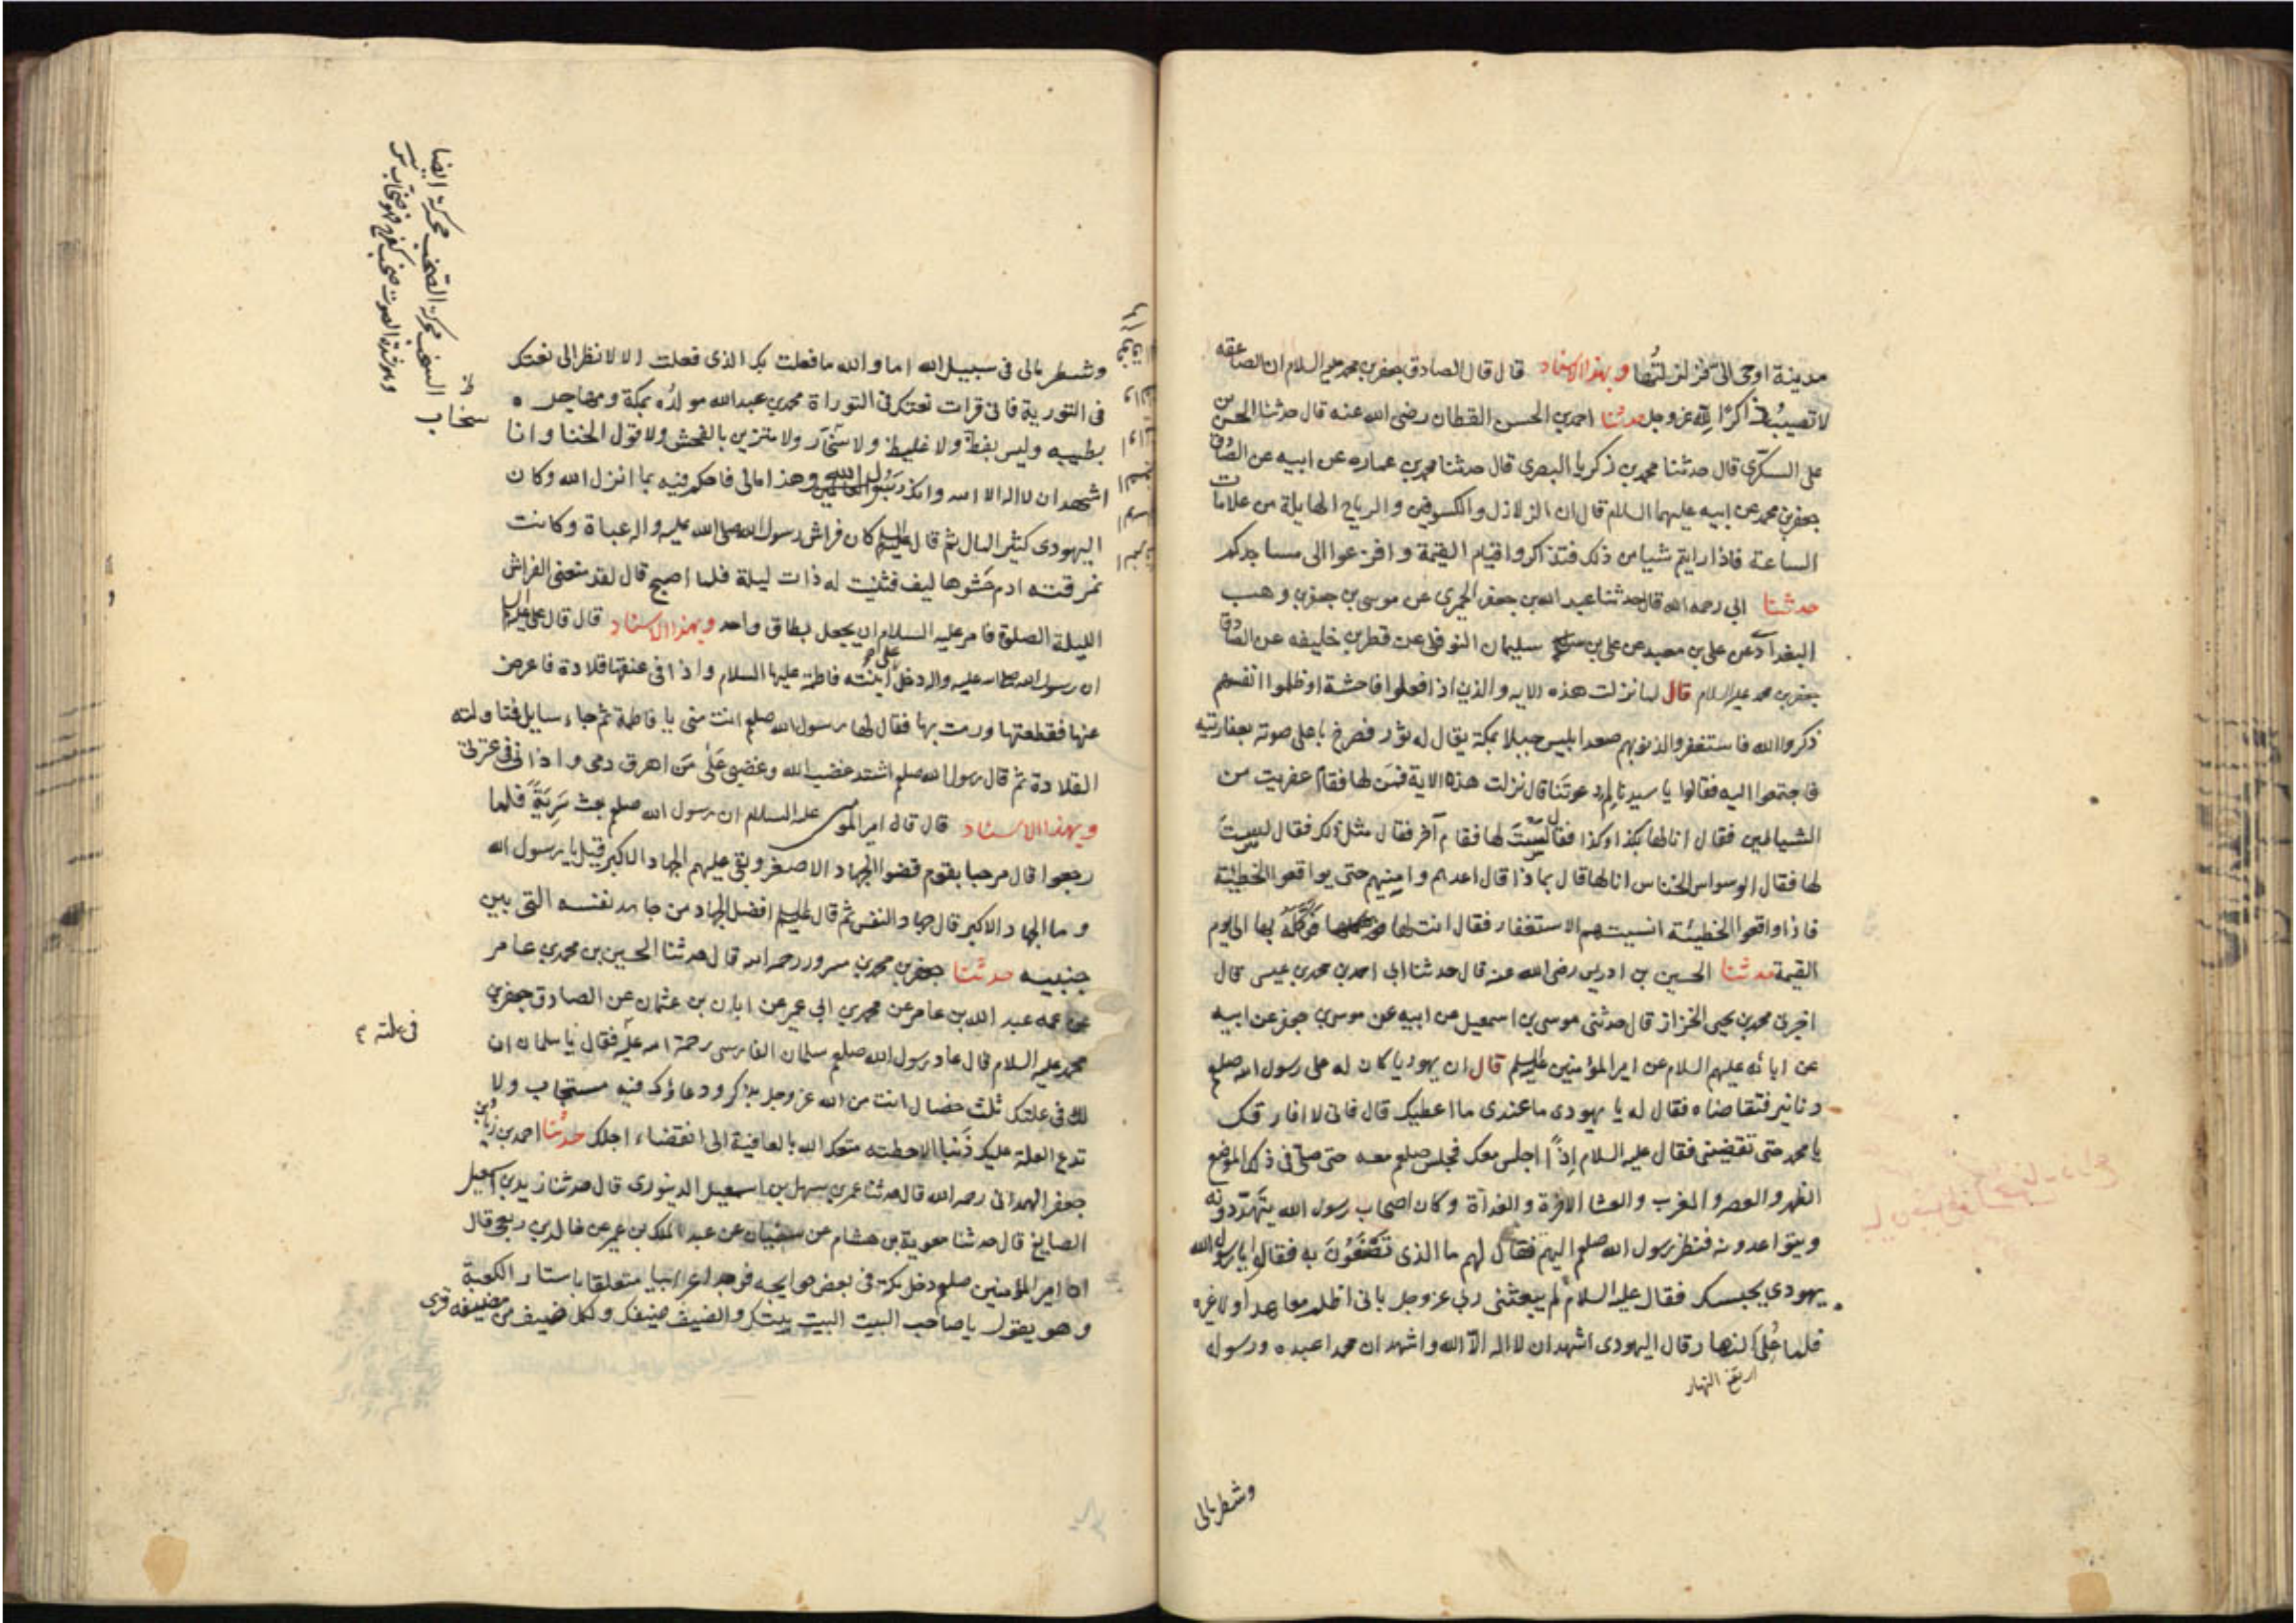 مدينة اوحى الى فزلزلتها وبهذا الاسناد قال قال الصادق جعفر بن محمد عليهم السلام ان الصاعقه
لا تصيب ذاكرًا لله عز وجل حدثنا احمد بن الحسن القطان رضى الله عنه قال حدثنا الحسن بن
على السكرى قال حدثنا محمد بن زكريا البصرى قال حدثنا محمد بن عماره عن ابيه عن الصادق
جعفر بن محمد عن ابيه عليهما السلام قال ان الزلازل والكسوفين والرياح الهايلة من علامات
الساعة فاذا رايتم شيا من ذلك فتذاكروا قيام القيمة وافزعوا الى مساجدكم
حدثنا ابى رحمه الله قال حدثنا عبد الله بن جعفر الحميرى عن موسى بن جعفر بن وهب
البغدادى عن على بن معبد عن على بن سليمان النوفلى عن فطر بن خليفه عن الصادق
جعفر بن محمد عليه السلام قال لما نزلت هذه الايه والذين اذا فعلوا فاحشة او ظلموا انفسهم
ذكروا الله فاستغفروا لذنوبهم صعد ابليس جبلا بمكة يقال له ثور فصرخ باعلى صوته بعفاريته
فاجتمعوا اليه فقالوا يا سيدنا لم دعوتنا قال نزلت هذه الاية فمن لها فقام عفريت من
الشياطين فقال انا لها بكذا وكذا فقال لست لها فقام آخر فقال مثل ذلك فقال لست
لها فقال الوسواس الخناس انا لها قال بماذا قال اعدهم وامنيهم حتى يواقعوا الخطيئة
فاذا واقعوا الخطيئة انسيتهم الاستغفار فقال انت لها فوكله بها الى يوم
القيمة حدثنا الحسين بن ادريس رضى الله عنه قال حدثنا ابى احمد بن محمد بن عيسى قال
اخبرنى محمد بن يحيى الخزاز قال حدثنى موسى بن اسمعيل عن ابيه عن موسى بن جعفر عن ابيه
عن ابائه عليهم السلام عن امير المؤمنين عليه السلم قال ان يهوديا كان له على رسول الله صلعم
دنانير فتقاضاه فقال له يا يهودى ما عندى ما اعطيك قال فانى لا افارقك
يا محمد حتى تقضينى فقال عليه السلام اذًا اجلس معك فجلس صلعم معه حتى صلى فى ذلك الموضع
الظهر والعصر والمغرب والعشا الاخرة والغداة وكان اصحاب رسول الله يتهددونه
ويتواعدونه فنظر رسول الله صلعم اليهم فقال لهم ما الذى تصنعون به فقالوا يا رسول الله
يهودى يحبسك فقال عليه السلام لم يبعثنى ربى عز وجل بانى اظلم معاهدا ولا غيره
فلما علا النهار قال اليهودى اشهد ان لا اله الا الله واشهد ان محمدا عبده ورسوله
ارتفع النهار
وشطر مالى
وشطر مالى فى سبيل الله اما والله ما فعلت بك الذى فعلت الا لانظر الى نعتك
فى التورية فانى قرات نعتك فى التوراة محمد بن عبد الله مولده بمكة ومهاجره
بطيبه وليس بفظ ولا غليظ ولا سخاب ولا متزين بالفحش ولا قول الخنا وانا
اشهد ان لا اله الا الله وانك رسول الله وهذا مالى فاحكم فيه بما انزل الله وكان
اليهودى كثير المال ثم قال عليه السلم كان فراش رسول الله صلى الله عليه واله عباة وكانت
مرفقته ادم حشوها ليف فثنيت له ذات ليلة فلما اصبح قال لقد منعنى الفراش
الليلة الصلوة فامر عليه السلام ان يجعل بطاق واحد وبهذا الاسناد قال قال على عليه السلام
ان رسول الله صلى الله عليه واله دخل على ابنته فاطمة عليها السلام واذا فى عنقها قلادة فاعرض
عنها فقطعتها ورمت بها فقال لها رسول الله صلعم انت منى يا فاطمة ثم جاء سايل فناولته
القلادة ثم قال رسول الله صلعم اشتد غضب الله وغضبى على من اهرق دمى واذانى فى عترتى
وبهذا الاسناد قال قال امير المؤمنين عليه السلام ان رسول الله صلعم بعث سرية فلما
رجعوا قال مرحبا بقوم قضوا الجهاد الاصغر وبقى عليهم الجهاد الاكبر قيل يا رسول الله
وما الجهاد الاكبر قال جهاد النفس ثم قال عليه السلم افضل الجهاد من جاهد نفسه التى بين
جنبيه حدثنا جعفر بن محمد بن مسرور رحمه الله قال حدثنا الحسين بن محمد بن عامر
عن عمه عبد الله بن عامر عن محمد بن ابى عمير عن ابان بن عثمان عن الصادق جعفر بن
محمد عليه السلام قال عاد رسول الله صلعم سلمان الفارسى رحمة الله عليه فقال يا سلمان ان
لك فى علتك ثلث خصال انت من الله عز وجل بذكر ودعاؤك فيه مستجاب ولا
تدع العلة عليك ذنبا الا حطته متعك الله بالعافية الى انقضاء اجلك حدثنا احمد بن زياد بن
جعفر الهمدانى رحمه الله قال حدثنا عمر بن سهل بن اسمعيل الدينورى قال حدثنا زيد بن اسمعيل
الصايغ قال حدثنا معوية بن هشام عن سفيان عن عبد الملك بن عمير عن خالد بن ربعى قال
ان امير المؤمنين صلعم دخل مكة فى بعض حوايجه فوجد اعرابيا متعلقا باستار الكعبة
وهو يقول يا صاحب البيت البيت بيتك والضيف ضيفك ولكل ضيف من مضيفه قرى
سخاب
السخب محركة الصخب محركة ايضا
وهو شدة الصوت صخب كفرح فهو صخاب
فى علته